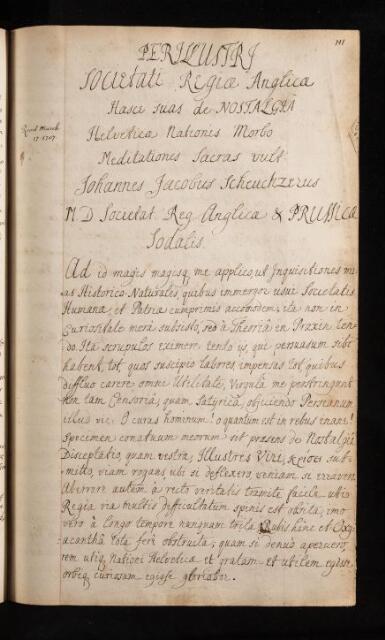 141
PERILLUSTRI
Societati Regiæ Anglicæ
Hasce suas de NOSTALGIA
Read March
17 1707
Helveticæ Nationis Morbo
Meditationes Sacras vult
Johannes Jacobus Scheuchzerus
M D Societat. Reg. Anglicæ & PRUSSICÆ
Sodalis.
Ad id magis magisq me applico, ut Inquisitiones me
as Historico Naturales, quibus immergor usui Societatis
Humanæ, et Patriæ cumprimis accomodem, ita non in
Curiositate mera subsisto, sed à Theoriâ in Praxin ten
do. Ita scrupulos eximere tento iis, qui persuasum sibi
habent, tot, quos suscipio labores, impensas tot quibus
diffluo carere omni Utilitate, Virgulâ me perstringunt
non tam Censoriâ, quam Satyricâ, objiciendo Persianum
illud vie: O curas hominum! o quantum est in rebus inane!
Specimen conatuum meorum sit præsens de Nostalgiâ
Disceptatio, quam vestræ, Illustres Viri, sub
mitto, viam rogans ubi si deflexero, veniam si erravero.
Aberrare autem à recto veritatis tramite facile, ubi
Regia via multis difficultatum spinis est obsita, imo
vero à longo tempore nunquam trita, Rubis hinc et Oxy
acanthâ tota ferè obstructa, quam si denuo aperuero,
rem utiq Nationi Helveticæ et gratam et utilem egisse,
orbiq curiosam egisse gloriabor.